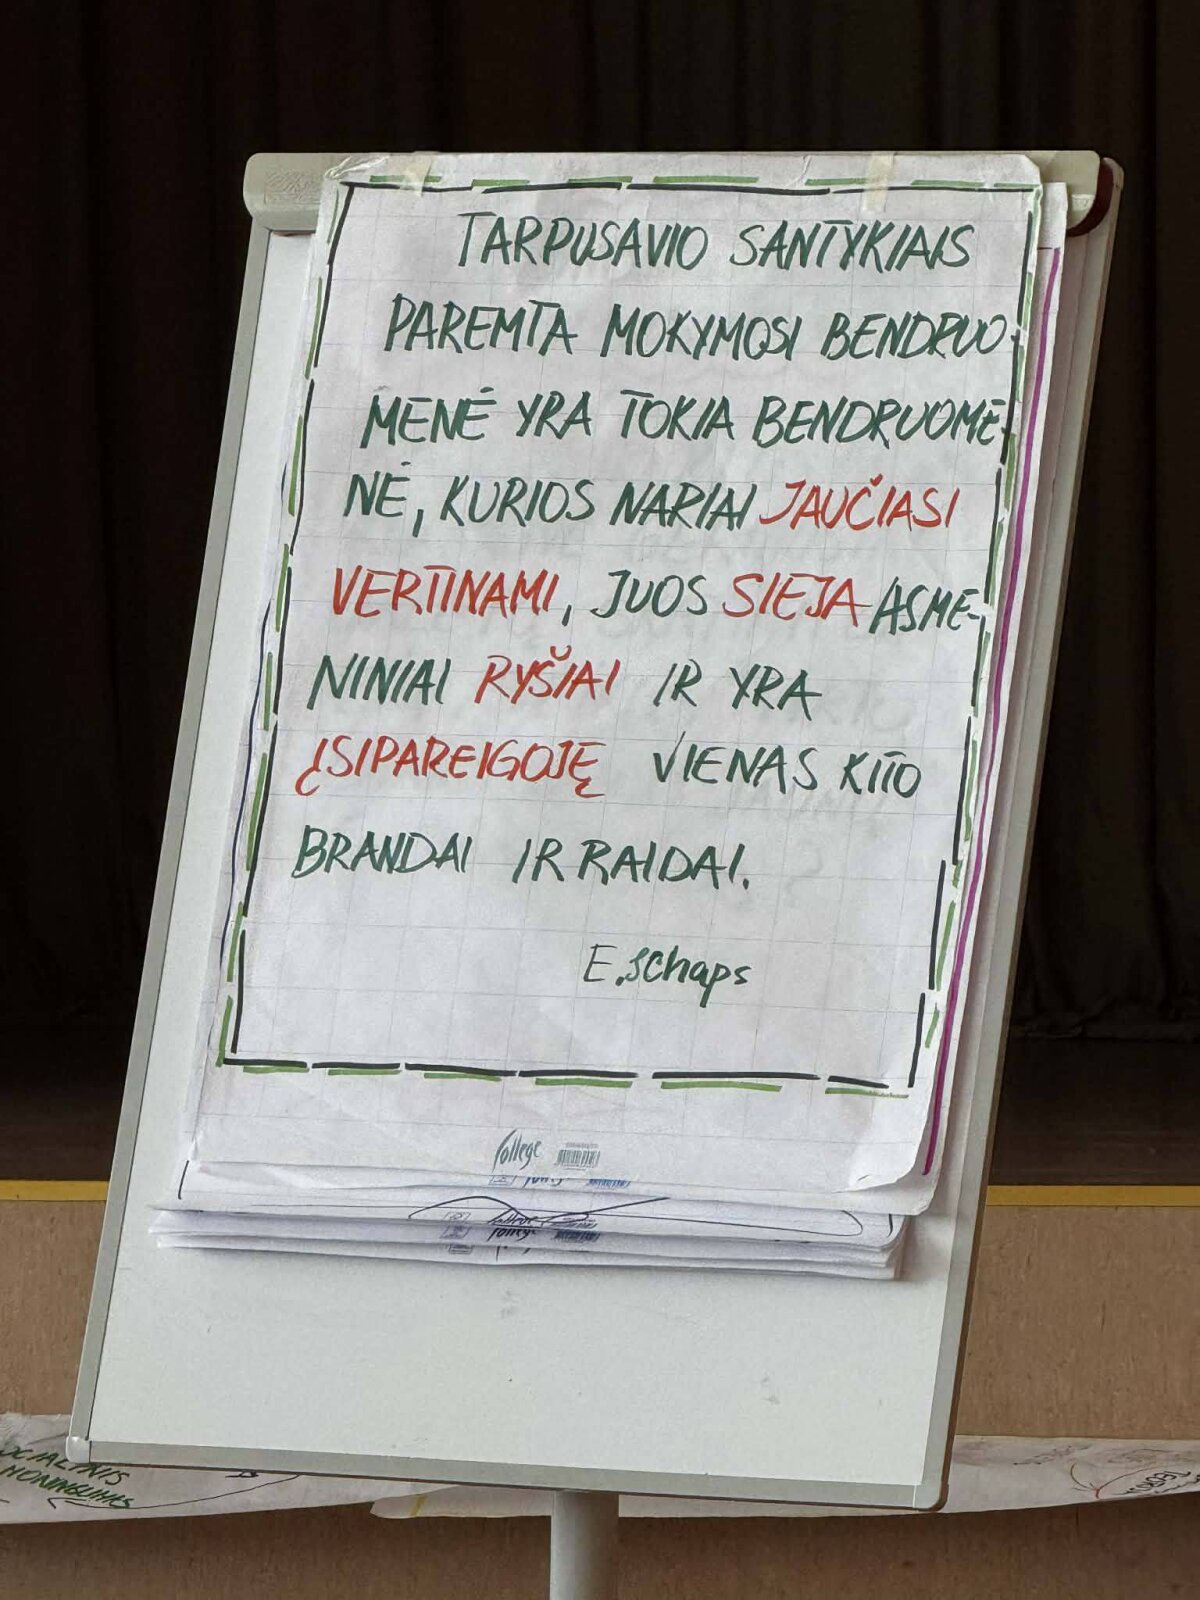 TARPUSAVIO SANTYKIAIS
PAREMTA MOKYMOSI BENDRUO-
MENĖ YRA TOKIA BENDRUOME-
NĖ, KURIOS NARIAI JAUČIASI
VERTINAMI, JUOS SIEJA ASME-
NINIAI RYŠIAI IR YRA
ĮSIPAREIGOJĘ VIENAS KITO
BRANDAI IR RAIDAI.
E.Schaps
College